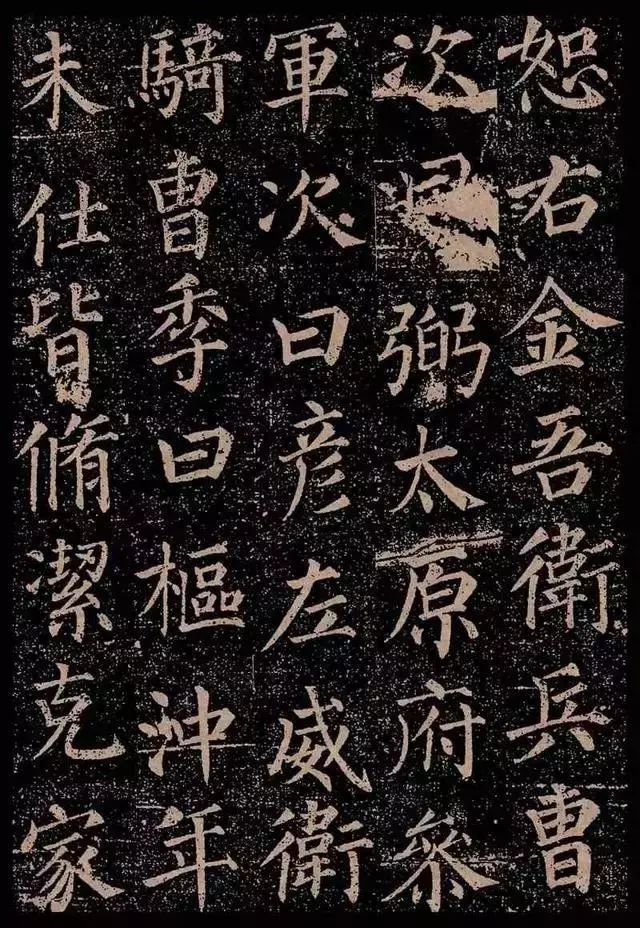 恕右金吾衛兵曹
次弼太原府叅
軍次曰彥左威衛
騎曹季曰樞沖年
未仕皆脩潔克家